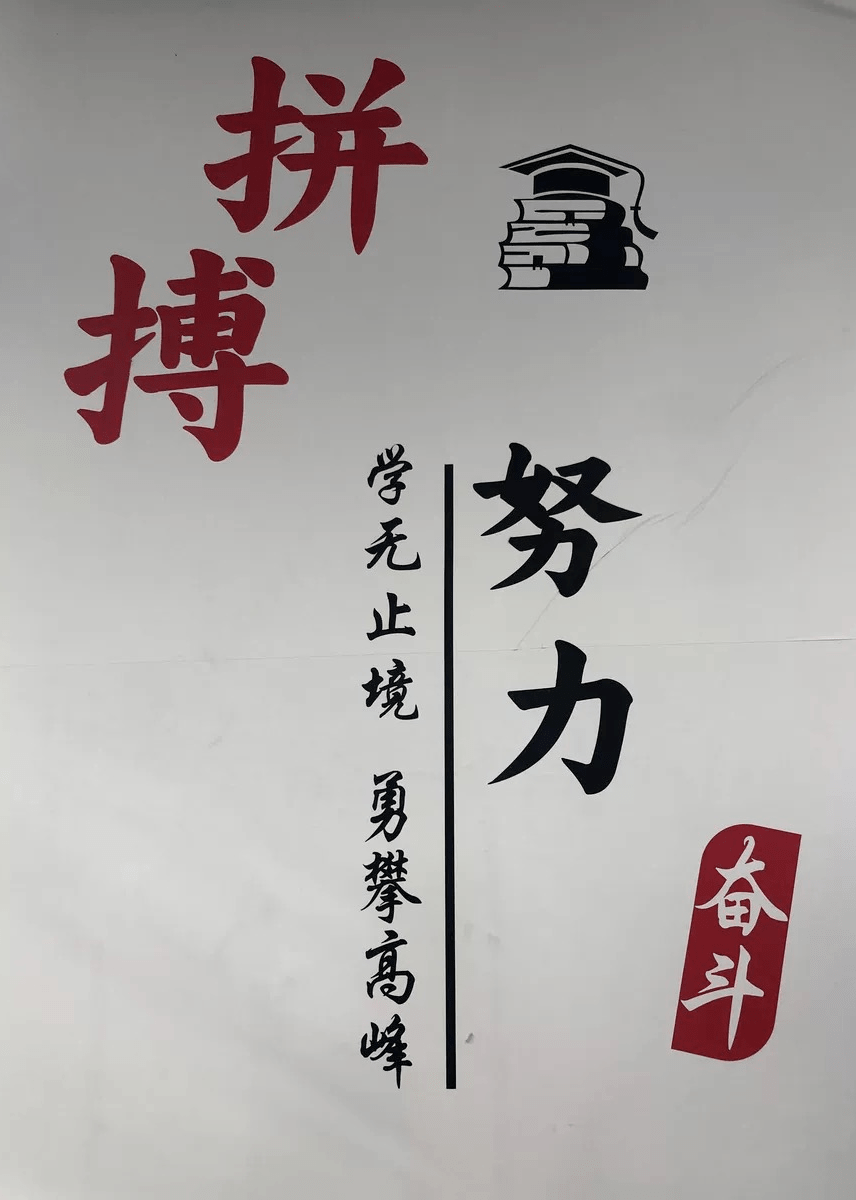 拼搏
努力
学无止境 勇攀高峰
奋斗